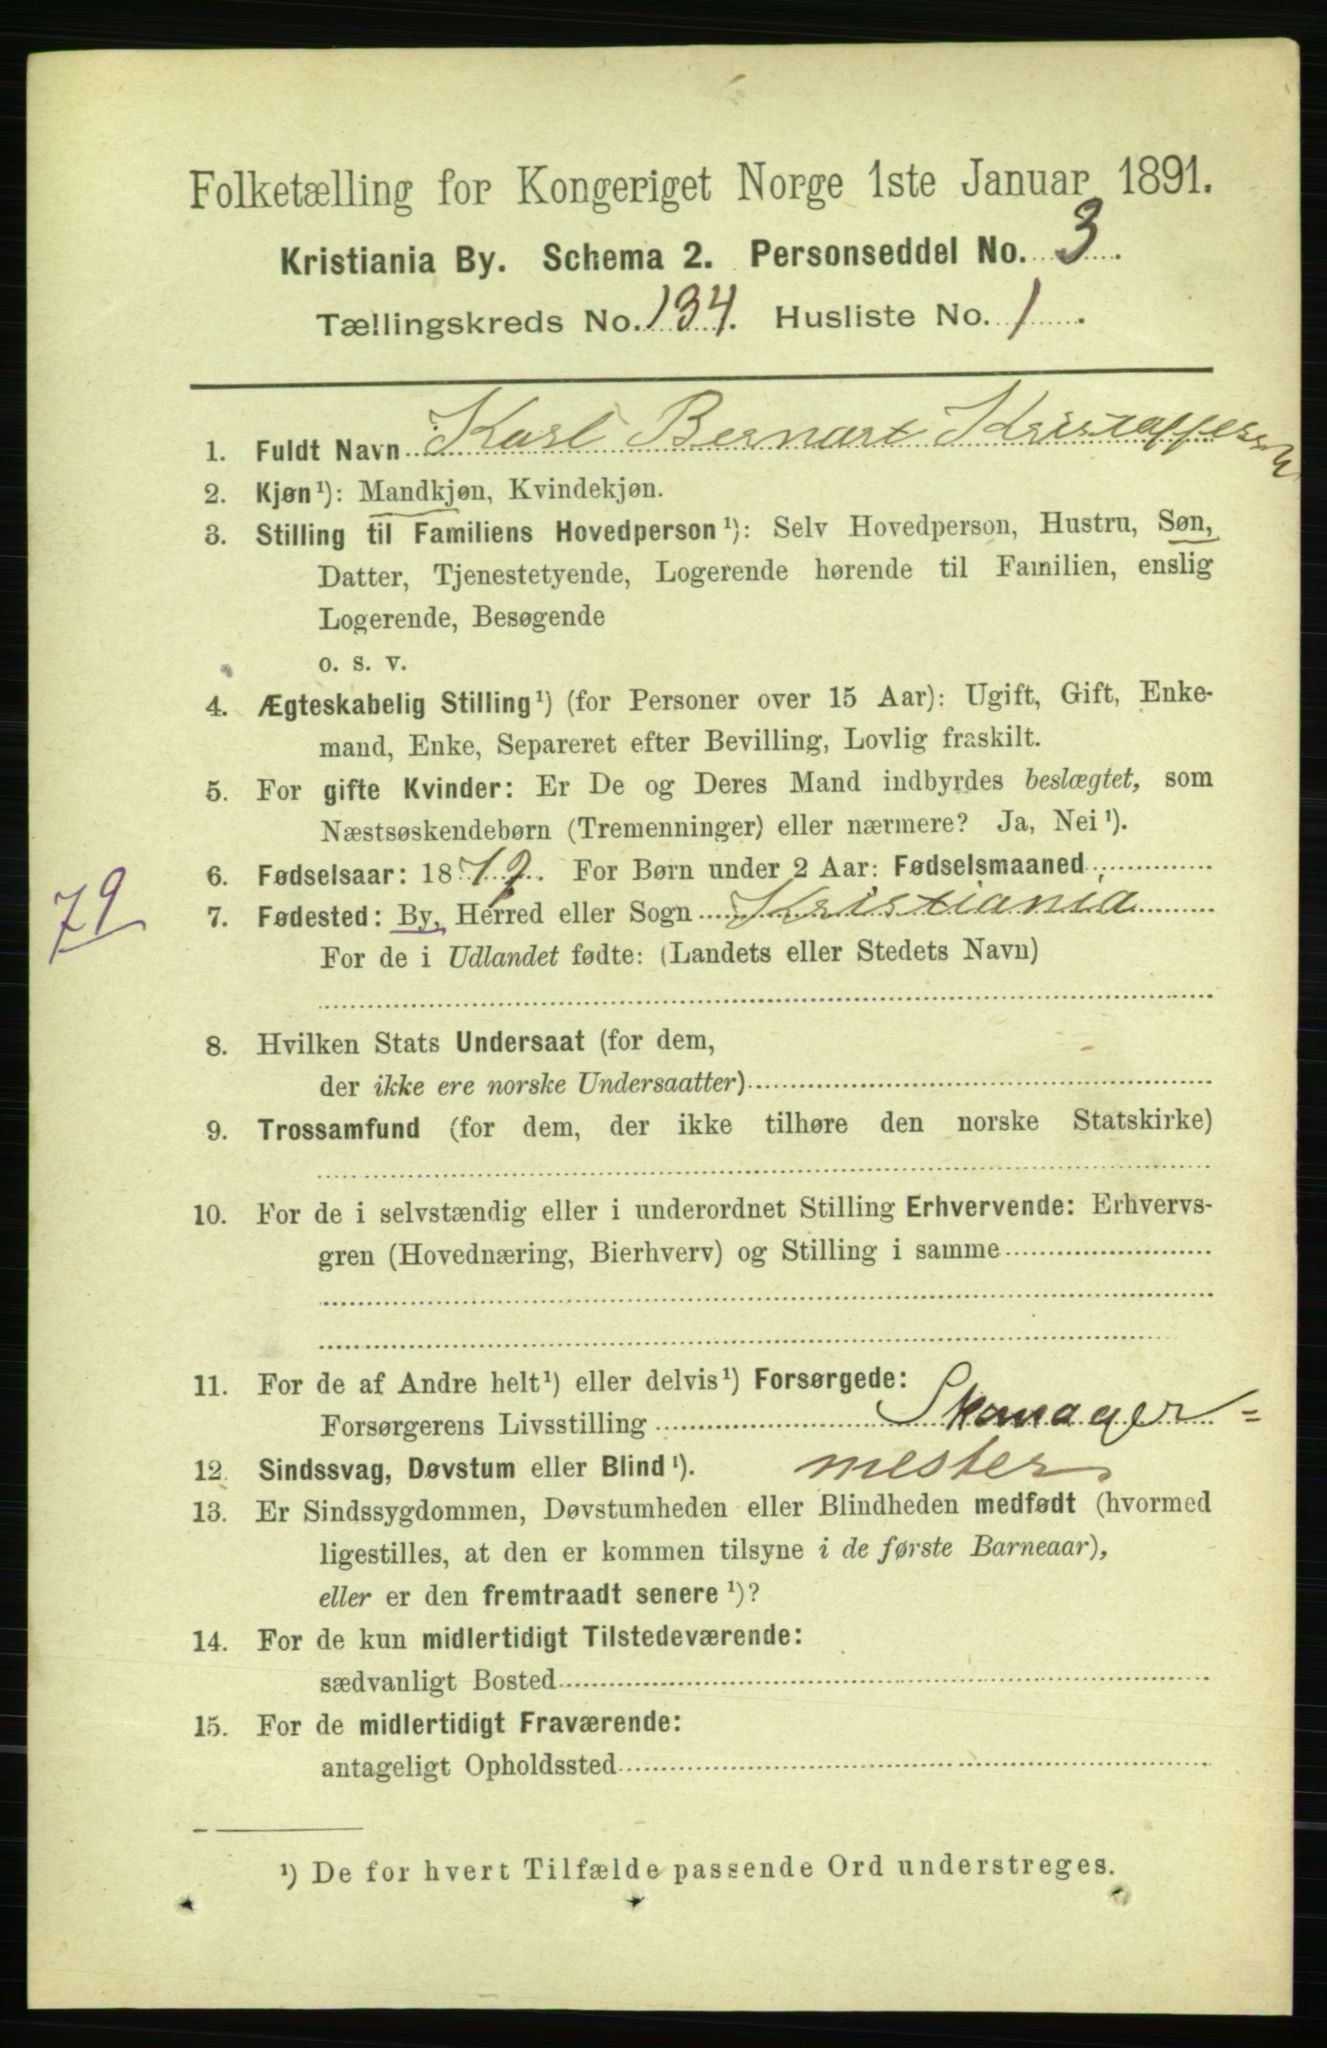 Folketælling for Kongeriget Norge 1ste Januar 1891.
Kristiania By. Schema 2. Personseddel No. 3.
Tællingskreds No. 134. Husliste No. 1.
1. Fuldt Navn Karl Bernart
2. Kjøn¹): Mandkjøn, Kvindekjøn.
3. Stilling til Familiens Hovedperson¹): Selv Hovedperson, Hustru, Søn,
Datter, Tjenestetyende, Logerende hørende til Familien, enslig
Logerende, Besøgende
o. s. v.
4. Ægteskabelig Stilling¹) (for Personer over 15 Aar): Ugift, Gift, Enke-
mand, Enke, Separeret efter Bevilling, Lovlig fraskilt.
5. For gifte Kvinder: Er De og Deres Mand indbyrdes beslægtet, som
Næstsøskendebørn (Tremenninger) eller nærmere? Ja, Nei¹).
6. Fødselsaar: 1879. For Børn under 2 Aar: Fødselsmaaned
79
7. Fødested: By, Herred eller Sogn Kristiania
For de i Udlandet fødte: (Landets eller Stedets Navn)
8. Hvilken Stats Undersaat (for dem,
der ikke ere norske Undersaatter)
9. Trossamfund (for dem, der ikke tilhøre den norske Statskirke)
10. For de i selvstændig eller i underordnet Stilling Erhvervende: Erhvervs-
gren (Hovednæring, Bierhverv) og Stilling i samme
11. For de af Andre helt¹) eller delvis¹) Forsørgede:
Forsørgerens Livsstilling Skomager=
mester
12. Sindssvag, Døvstum eller Blind¹).
13. Er Sindssygdommen, Døvstumheden eller Blindheden medfødt (hvormed
ligestilles, at den er kommen tilsyne i de første Barneaar),
eller er den fremtraadt senere¹)?
14. For de kun midlertidigt Tilstedeværende:
sædvanligt Bosted
15. For de midlertidigt Fraværende:
antageligt Opholdssted
¹) De for hvert Tilfælde passende Ord understreges.